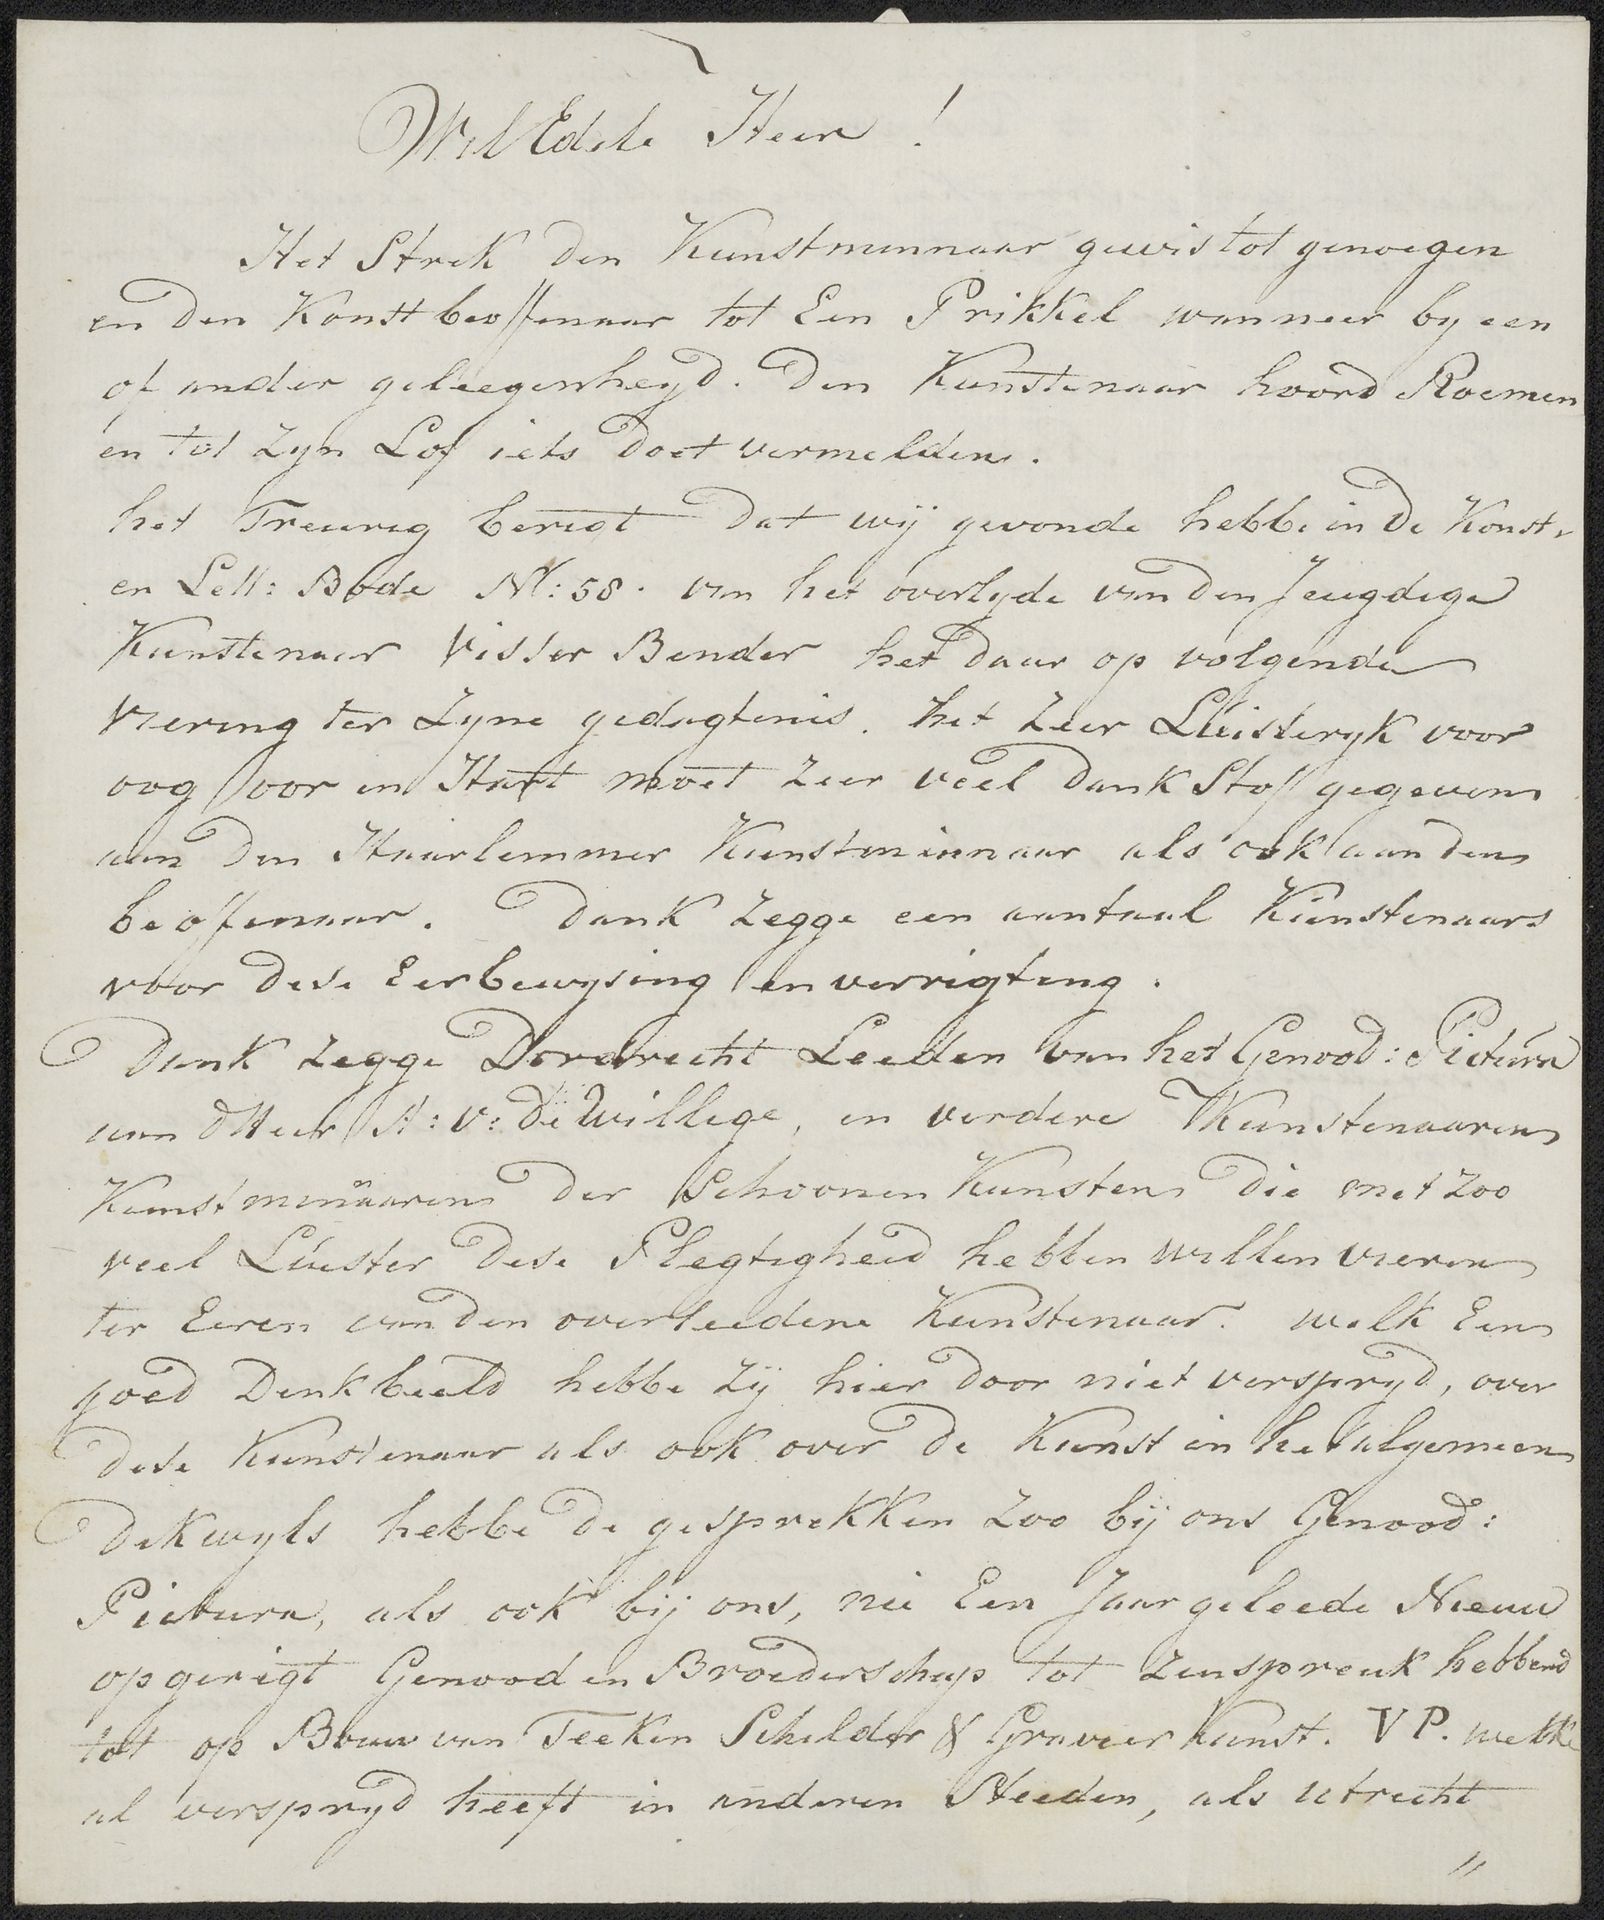 WelEdele Heer!
Het Strek den Kunstminnaar gewis tot genoegen
en den Konstbeoffenaar tot Een Prikkel wanneer by een
of ander geleegenheyd. den Kunstenaar hoord Roemen
en tot zyn Lof iets doet vermelden.
het Treurig berigt dat wij gevonde hebbe in de Konst
en Lett: Bode N: 58. van het overlyde van den Jeugdige
Kunstenaar Visser Bender het daar op volgende
viering ter zyne gedagtenis. het zeer Luisteryk voor
oog oor en Hart moet zeer veel dank Stof gegeven
aan den Haarlemmer Kunstminnaar als ook aan den
beoffenaar. dank zegge een aantaal Kunstenaars
voor dese Eerbewysing en verrigting.
dank zegge Dordrecht Leeden van het Genood: Pictura
aan dHeer A: v: de Willige, en verdere Kunstenaaren
Kunstminaaren der Schoonen Kunsten die met zoo
veel Luister dese Plegtigheid hebben willen vieren
ter Eeren van den overleedene Kunstenaar. welk Een
goed Denkbeeld hebbe zij hier door niet verspryd, over
dese Kunstenaar als ook over de Kunst in het algemeen
dekwyls hebbe de gesprekken zoo bij ons Genood:
Pictura, als ook bij ons, nu Een Jaar geleede Nieuw
opgerigt Genood en Broederschap tot zenspreuk hebbend
tot op Bouw van Teeken Schilder & Graveer Kunst. VP. welke
al verspryd heeft in anderen Steeden, als utrecht
"